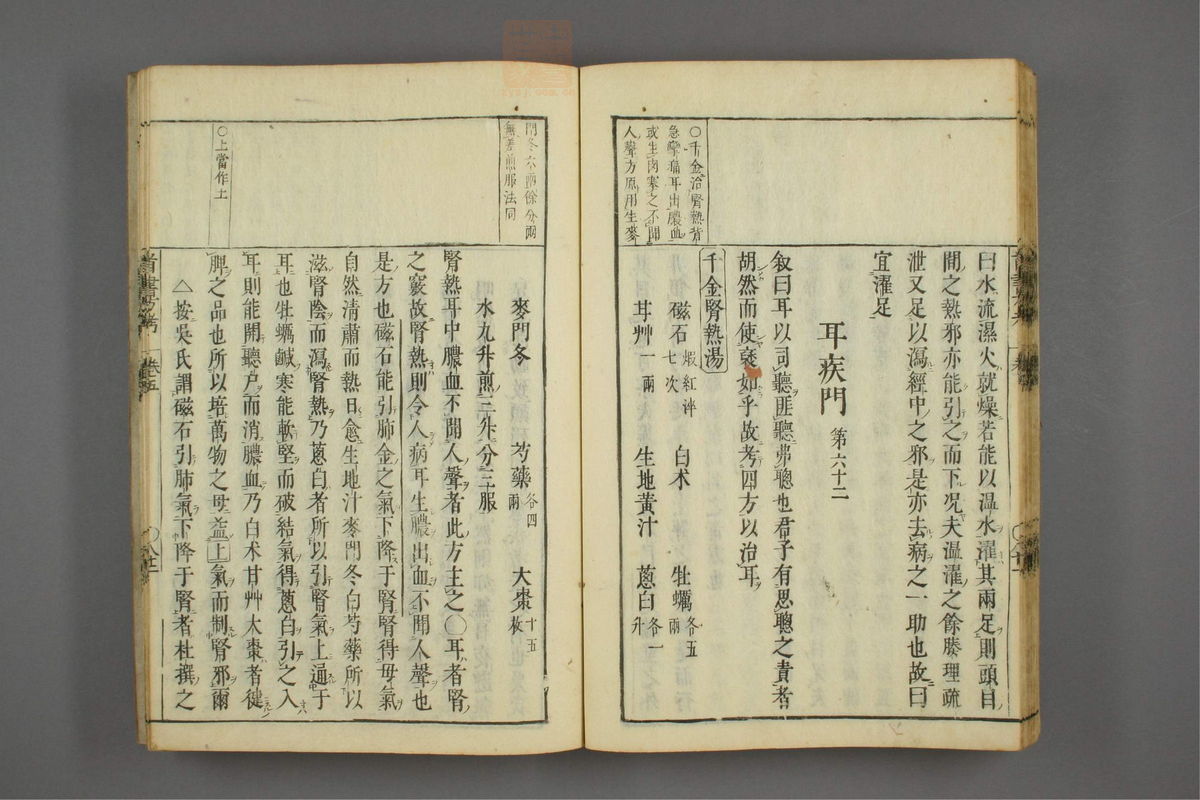 ○千金治腎熱背
急攣痛耳出膿血
或生肉塞之不聞
人聲方原用生麥
曰水流濕火就燥若能以溫水濯其兩足則頭目
間之熱邪亦能引之而下况夫溫濯之餘腠理疏
泄又足以瀉經中之邪是亦去病之一助也故曰
宜濯足
耳疾門 第六十二
叙曰耳以司聽匪聽弗聰也君子有思聰之責者
胡然而使褎如乎故考四方以治耳
千金腎熱湯
磁石 煅紅淬七次 白术 牡蠣 各五兩
甘艸 一兩 生地黃汁 蔥白 各一升
門冬六兩餘分兩
無差煎服法同
○上當作土
麥門冬 芍藥 各四兩 大棗 十五枚
水九升煎三升分三服
腎熱耳中膿血不聞人聲者此方主之○耳者腎
之竅故腎熱則令人病耳生膿出血不聞人聲也
是方也磁石能引肺金之氣下降于腎腎得母氣
自然清肅而熱日愈生地汁麥門冬白芍藥所以
滋腎陰而瀉腎熱乃蔥白者所以引腎氣上通于
耳也牡蠣鹹寒能軟堅而破結氣得蔥白引之入
耳則能開聽戶而消膿血乃白术甘艸大棗者健
脾之品也所以培萬物之母益上氣而制腎邪爾
△按吳氏謂磁石引肺氣下降于腎者杜撰之
卷五